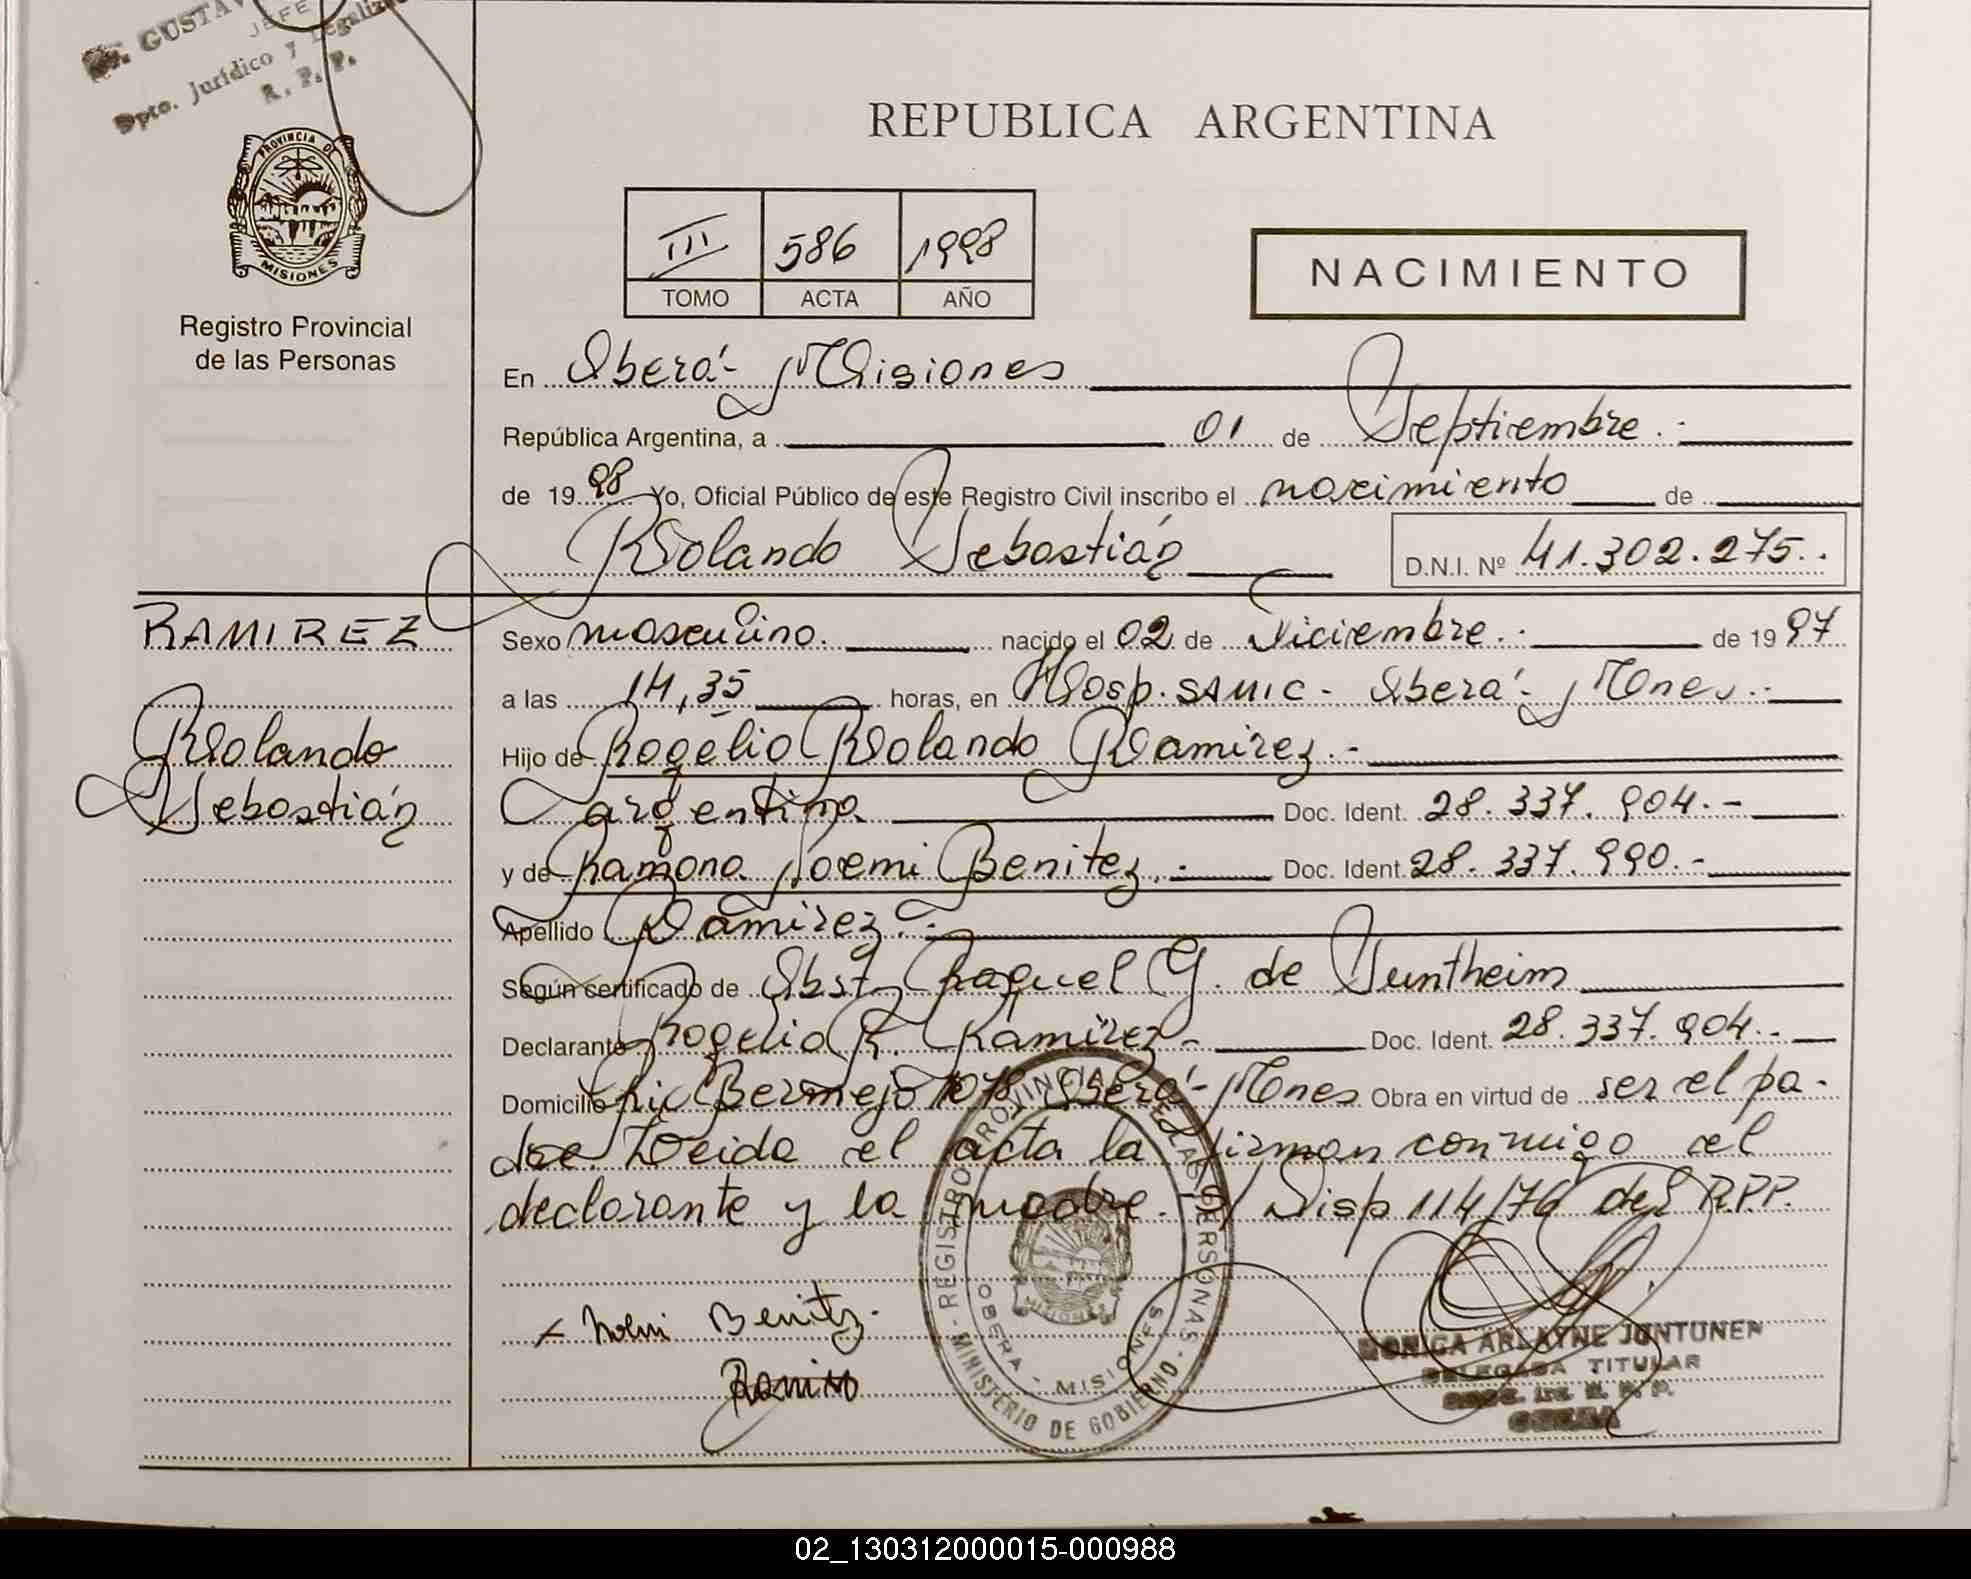 GUSTAV
JEFE
Dpto. Jurídico y Legaliz
R. P. P.
PROVINCIA DE
MISIONES
Registro Provincial
de las Personas
REPUBLICA ARGENTINA
III 586 1998
TOMO ACTA AÑO
NACIMIENTO
En Oberá- Misiones
República Argentina, a 01 de Septiembre.-
de 1998 Yo, Oficial Público de este Registro Civil inscribo el nacimiento de
Rolando Sebastián D.N.I. Nº 41.302.275.-
RAMIREZ
Rolando
Sebastián
Sexo masculino. nacido el 02 de Diciembre.- de 1997
a las 14,35 horas, en Hosp. SAMIC - Oberá- Mnes.-
Hijo de Rogelio Rolando Ramirez.-
argentina Doc. Ident. 28.337.904.-
y de Ramona Noemi Benitez.- Doc. Ident. 28.337.990.-
Apellido Ramirez.-
Según certificado de Obst. Raquel G. de Suntheim
Declarante Rogelio R. Ramirez- Doc. Ident. 28.337.904.-
Domicilio Rio Bermejo 1078 Oberá- Mnes Obra en virtud de ser el pa-
dre. Leida el acta la firman conmigo el
declarante y la madre. S/ Disp 114/76 del R.P.P.
Noemi Benitz.
Ramirez
REGISTRO PROVINCIAL DE LAS PERSONAS - MINISTERIO DE GOBIERNO -
MISIONES
OBERA - MISIONES
MONICA ARLAYNE JUNTUNEN
DELEGADA TITULAR
OBERA
02_130312000015-000988